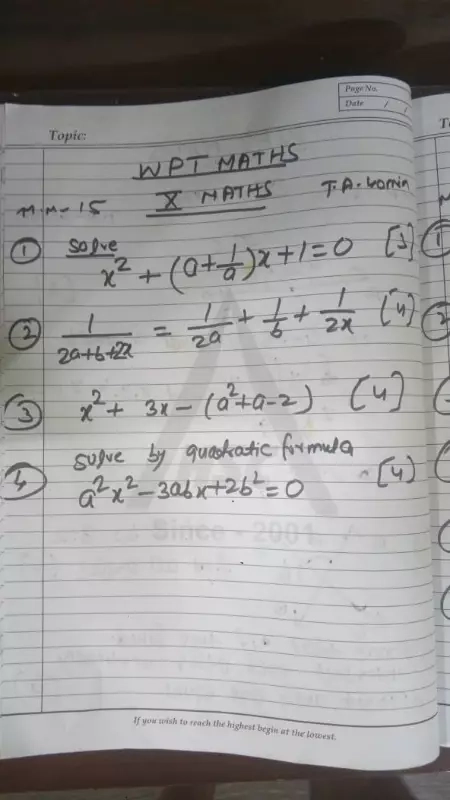 Page No.
Date / /
Topic:
WPT MATHS
X MATHS T.A. 40min
M.M - 15
① Solve
x² + (a+1/a)x+1=0 [3]
② 1/(2a+b+2x) = 1/2a + 1/b + 1/2x [4]
③ x² + 3x - (a²+a-2) [4]
④ Solve by quadratic formula
a²x² - 3abx+2b²=0 [4]
Since - 2001
If you wish to reach the highest begin at the lowest.